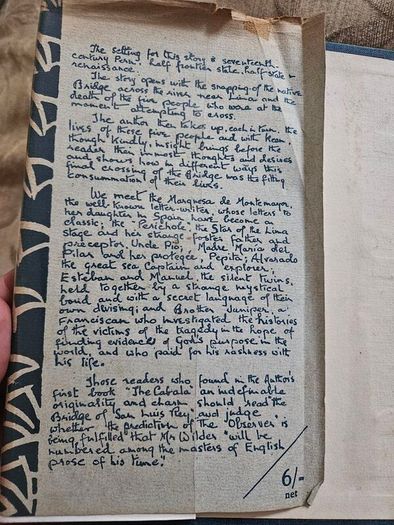 The setting for this story is seventeenth
century Peru, half frontier state, half-state
renaissance.
The story opens with the snapping of the native
Bridge across the river near Lima and the
death of the five people who were at the
moment attempting to cross.
The author then takes up, each in turn, the
lives of these five people and with keen
though kindly insight brings before the
reader their inmost thoughts and desires
and shows how in different ways this
final crossing of the Bridge was the fitting
consummation of their lives.
We meet the Marquesa de Montemayor,
the well-known letter-writer, whose letters to
her daughter in Spain have become an
classic; the Perichole, the Star of the Lima
stage and her strange foster father and
preceptor Uncle Pio; Madre Maria del
Pilar and her protegée, Pepita; Alvarado
the great sea Captain and explorer;
Esteban and Manuel, the silent twins,
held together by a strange mystical
bond and with a secret language of their
own devising; and Brother Juniper, a
Franciscan who investigated the histories
of the victims of the tragedy in the hope of
finding evidence of God's purpose in the
world, and who paid for his rashness with
his life.
Those readers who found in the Author's
first book "The Cabala" an indefinable
originality and charm should read "The
Bridge of San Luis Rey" and judge
whether the prediction of The Observer is
being fulfilled "that Mr Wilder "will be
numbered among the masters of English
prose of his time."
6/-
net